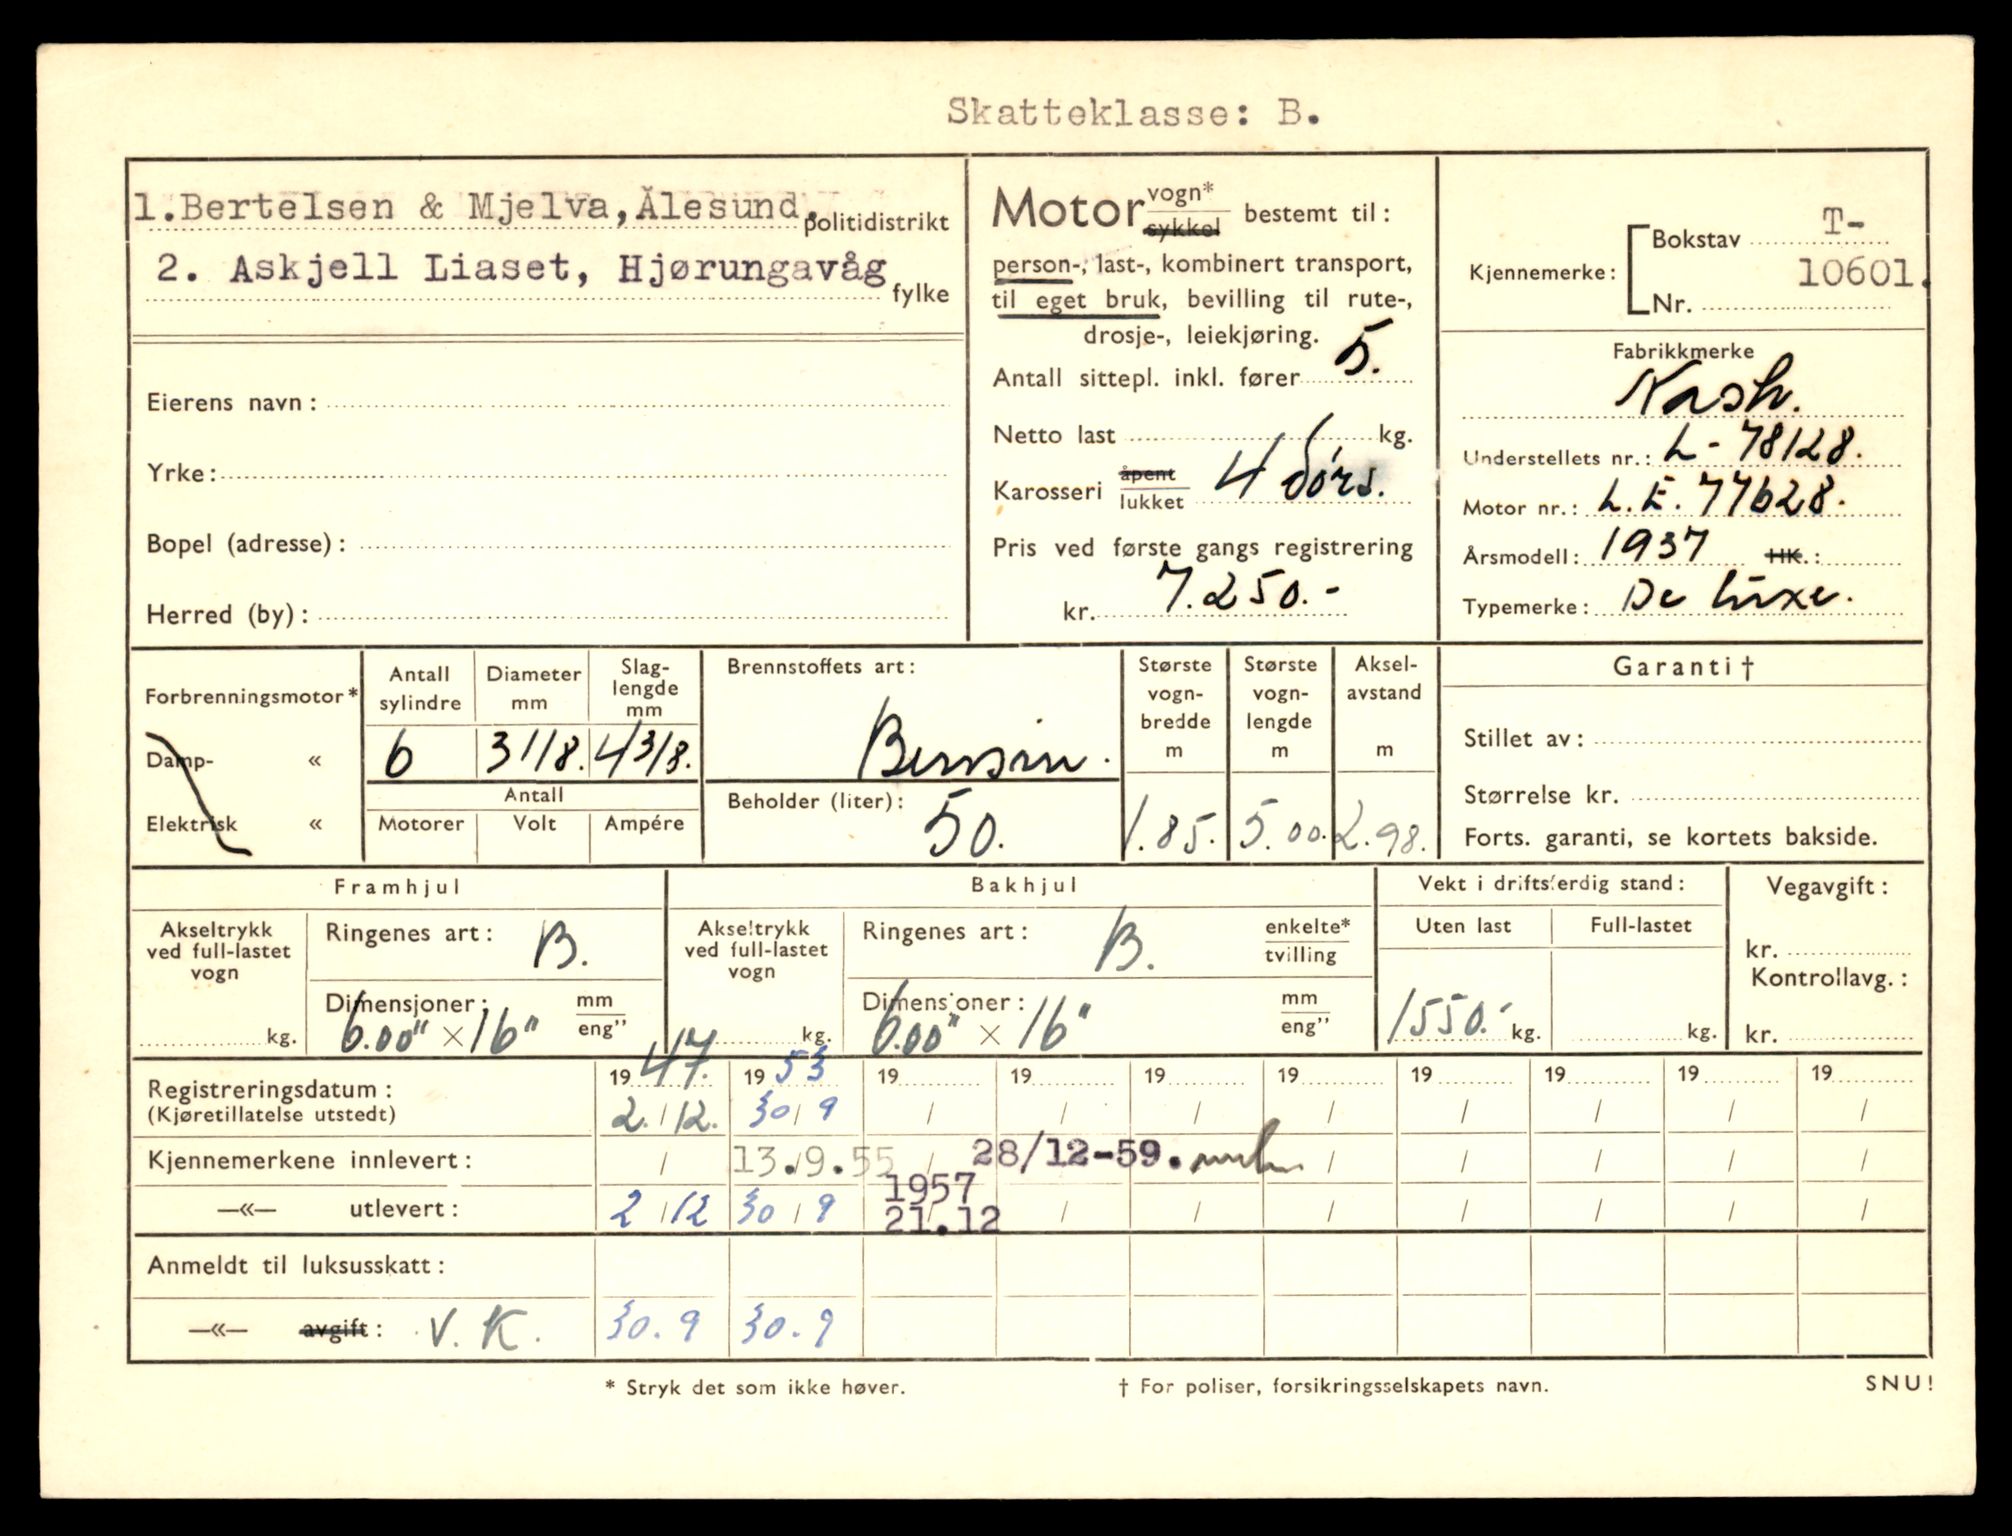 Skatteklasse: B.
1.Bertelsen & Mjelva,Ålesund. politidistrikt
2. Askjell Liaset, Hjørungavåg fylke
Eierens navn:
Yrke:
Bopel (adresse):
Herred (by):
Motor vogn* sykkel bestemt til:
person-, last-, kombinert transport,
til eget bruk, bevilling til rute-,
drosje-, leiekjøring.
Antall sittepl. inkl. fører 5.
Netto last kg.
Karosseri åpent lukket 4 dørs.
Pris ved første gangs registrering
kr. 7.250.-
Kjennemerke: Bokstav T-
Nr. 10601.
Fabrikkmerke
Nash.
Understellets nr.: L-78128.
Motor nr.: L.E. 77628.
Årsmodell: 1937 HK.:
Typemerke: De lüxe.
Forbrenningsmotor*
Damp- «
Elektrisk «
Antall sylindre
6
Diameter mm
3 1/8.
Slag-
lengde
mm
4 3/8.
Antall
Motorer Volt Ampére
Brennstoffets art:
Bensin.
Beholder (liter): 50.
Største
vogn-
bredde
m
1.85.
Største
vogn-
lengde
m
5.00.
Aksel-
avstand
m
2.98.
Garanti†
Stillet av:
Størrelse kr.
Forts. garanti, se kortets bakside.
Framhjul
Akseltrykk
ved full-lastet
vogn
kg.
Ringenes art: B.
Dimensjoner: mm eng”
6.00" × 16"
Bakhjul
Akseltrykk
ved full-lastet
vogn
kg.
Ringenes art: B. enkelte* tvilling
Dimensjoner: mm eng”
6.00" × 16"
Vekt i driftsferdig stand:
Uten last Full-lastet
1550.- kg. kg.
Vegavgift:
kr.
Kontrollavg.:
kr.
Registreringsdatum: 19 47. 19 53 19 19 19 19 19 19 19 19
(Kjøretillatelse utstedt) 2. / 12. 30 / 9 / / / / / / / /
Kjennemerkene innlevert: / 13./9.55 / 28/12-59. / / / / /
—«— utlevert: 2 / 12 30 / 9 1957 21.12 / / / / / / /
Anmeldt til luksusskatt:
—«— avgift: V. K. 30. 9 30. 9
* Stryk det som ikke høver.
† For poliser, forsikringsselskapets navn.
SNU!